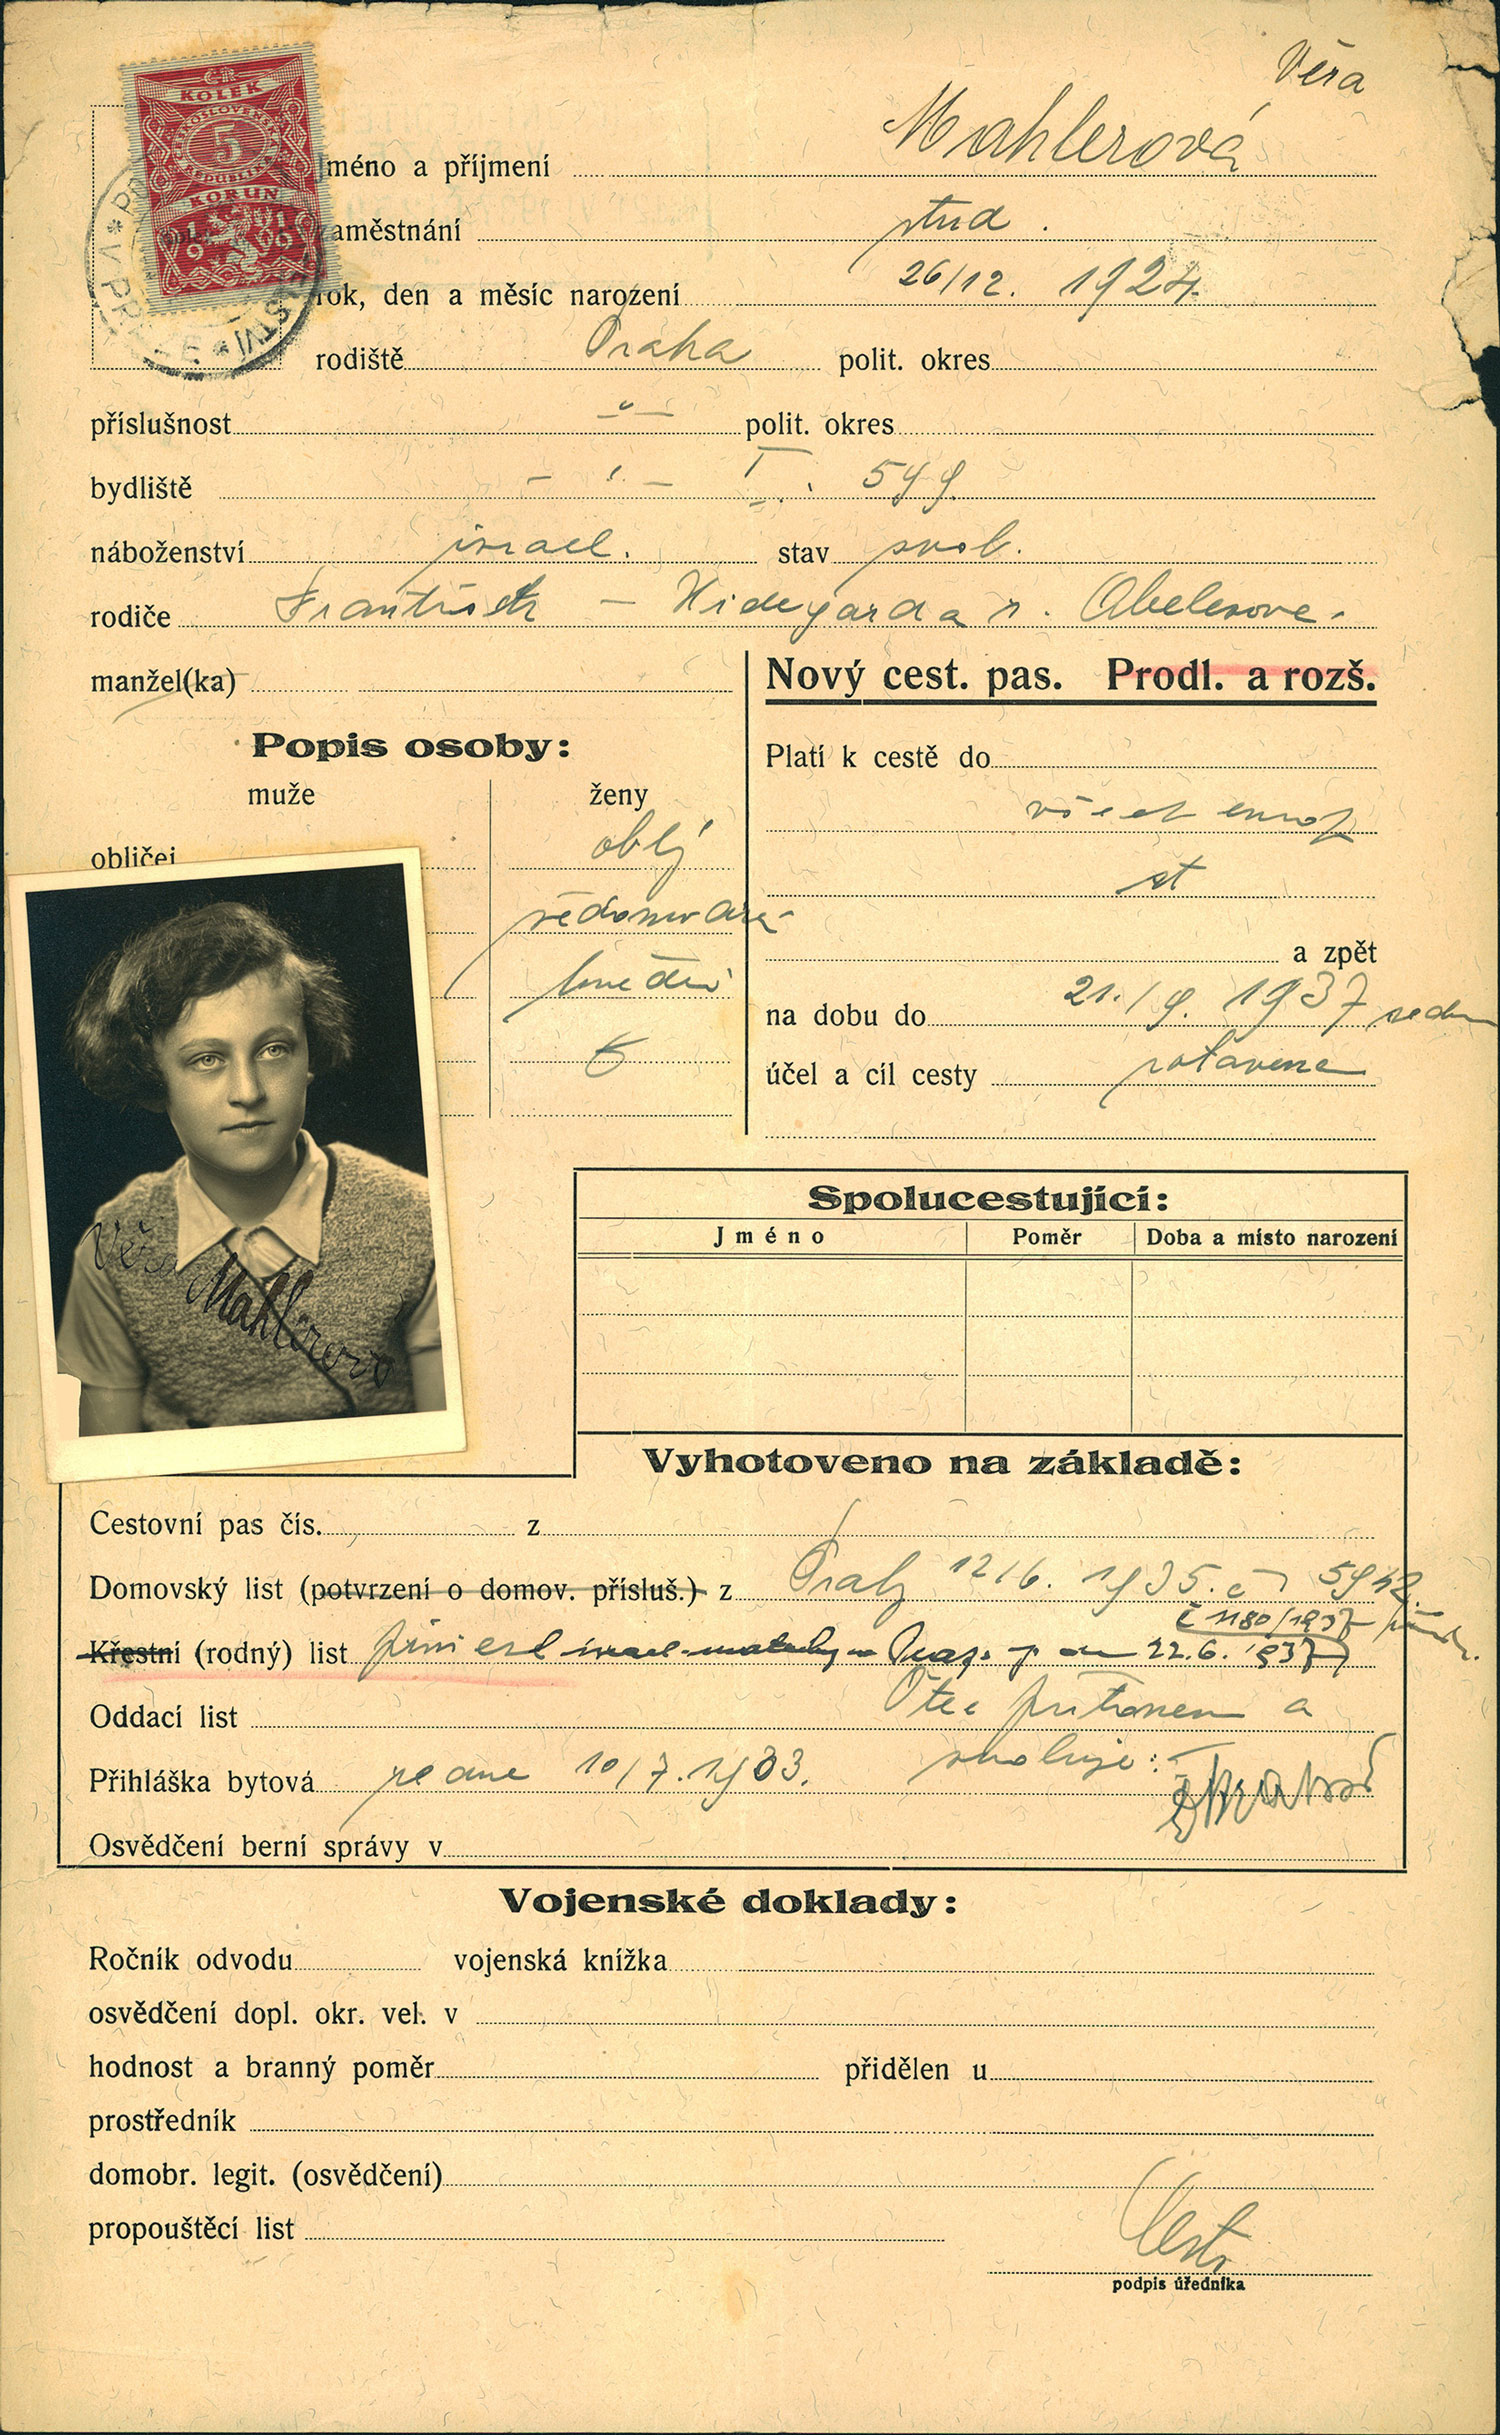 Věra
ČR
KOLEK
ČESKOSLOVENSKÁ
5
REPUBLIKA
KORUN
1919
Jméno a příjmení Mahlerová
zaměstnání stud.
rok, den a měsíc narození 26/12. 1924
rodiště Praha polit. okres
příslušnost -"- polit. okres
bydliště -"- I. 599
náboženství israel. stav svob.
rodiče František - Hidegarda r. Abelesove
manžel(ka)
Nový cest. pas. Prodl. a rozš.
Popis osoby:
muže ženy
obličej oblý
hnědé
Platí k cestě do
všech evrop
st
a zpět
na dobu do 21./9. 1937
účel a cíl cesty zotavená
Věra Mahlerová
Spolucestující:
Jméno Poměr Doba a místo narození
Vyhotoveno na základě:
Cestovní pas čís. z
Domovský list (potvrzení o domov. přísluš.) z Prahy 12/6. 1935. č 5942.
č 1180/1937
Křestní (rodný) list israel. matriky v Praze 22.6. 1937
Oddací list Otec přítomen a
Přihláška bytová ze dne 10/7. 1933. svoluje:
Osvědčení berní správy v
Vojenské doklady:
Ročník odvodu vojenská knížka
osvědčení dopl. okr. vel. v
hodnost a branný poměr přidělen u
prostředník
domobr. legit. (osvědčení)
propouštěcí list
podpis úředníka